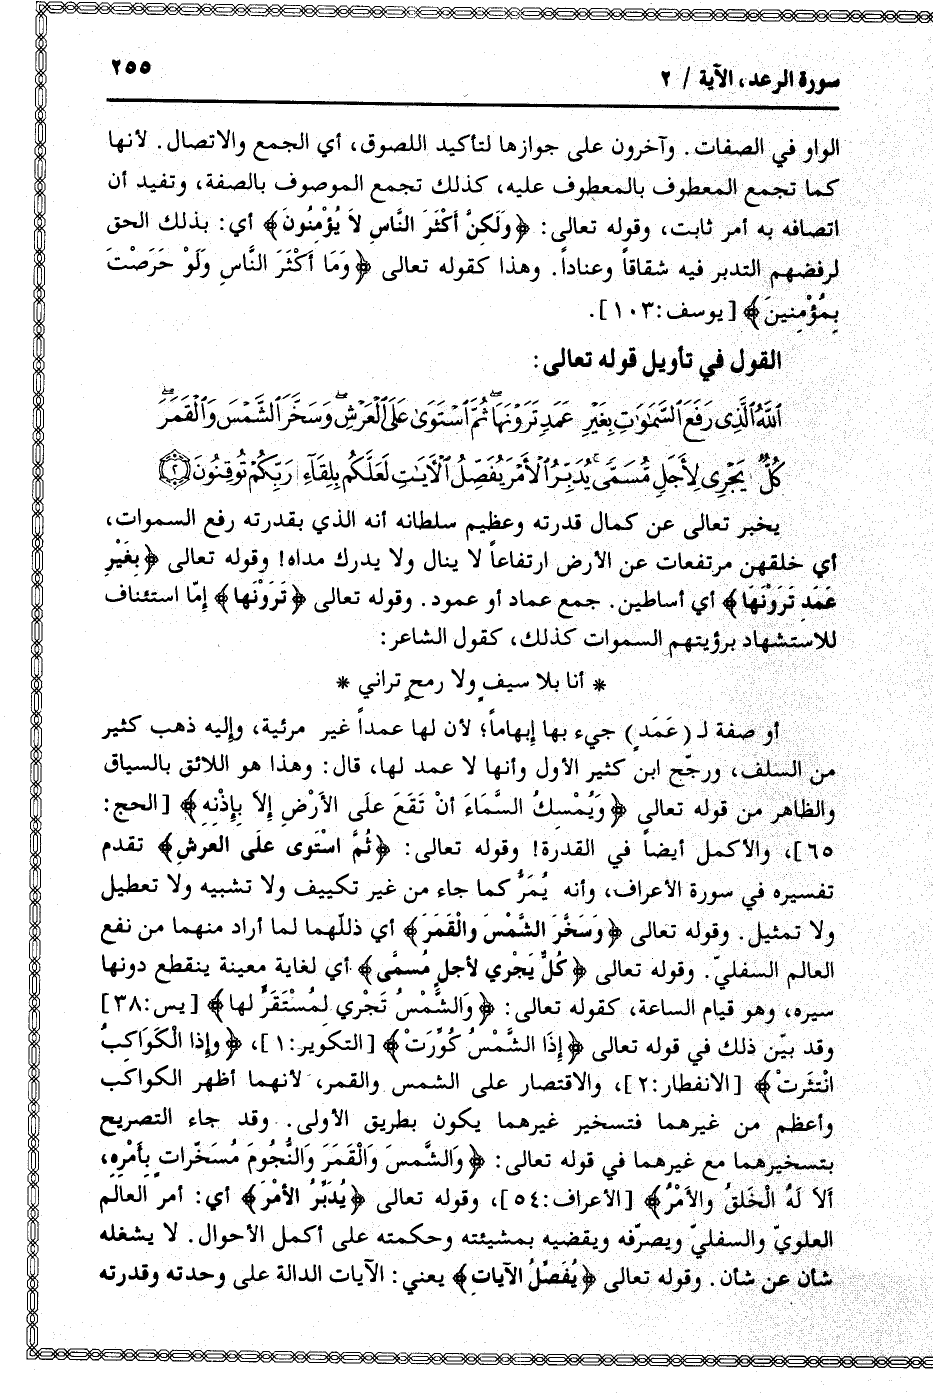 سورة الرعد، الآية / ٢
٢٥٥
الواو في الصفات. وآخرون على جوازها لتأكيد اللصوق، أي الجمع والاتصال. لأنها
كما تجمع المعطوف بالمعطوف عليه، كذلك تجمع الموصوف بالصفة، وتفيد أن
اتصافه به أمر ثابت، وقوله تعالى: ﴿وَلَكِنَّ أَكْثَرَ النَّاسِ لاَ يُؤْمْنُونَ﴾ أي: بذلك الحق
لرفضهم التدبر فيه شقاقاً وعناداً. وهذا كقوله تعالى ﴿وَمَا أَكْثَرَ النَّاسِ وَلَوْ حَرَصْتَ
بِمُؤْمِنينَ﴾ [يوسف:١٠٣].
القول في تأويل قوله تعالى:
ٱللَّهُ ٱلَّذِى رَفَعَ ٱلسَّمَٰوَٰتِ بِغَيْرِ عَمَدٍ تَرَوْنَهَا ۖ ثُمَّ ٱسْتَوَىٰ عَلَى ٱلْعَرْشِ ۖ وَسَخَّرَ ٱلشَّمْسَ وَٱلْقَمَرَ ۖ
كُلٌّ يَجْرِى لِأَجَلٍ مُّسَمًّى ۚ يُدَبِّرُ ٱلْأَمْرَ يُفَصِّلُ ٱلْآيَٰتِ لَعَلَّكُم بِلِقَآءِ رَبِّكُمْ تُوقِنُونَ ﴿٢﴾
يخبر تعالى عن كمال قدرته وعظيم سلطانه أنه الذي بقدرته رفع السموات،
أي خلقهن مرتفعات عن الأرض ارتفاعاً لا ينال ولا يدرك مداه! وقوله تعالى ﴿بِغَيْرِ
عَمَدٍ تَرَوْنَهَا﴾ أي أساطين. جمع عماد أو عمود. وقوله تعالى ﴿تَرَوْنَها﴾ إمّا استئناف
للاستشهاد برؤيتهم السموات كذلك، كقول الشاعر:
* أنا بلا سيفٍ ولا رمحٍ تراني *
أو صفة لـ (عَمَدٍ) جيء بها إبهاماً؛ لأن لها عمداً غير مرئية، وإليه ذهب كثير
من السلف، ورجّح ابن كثير الأول وأنها لا عمد لها، قال: وهذا هو اللائق بالسياق
والظاهر من قوله تعالى ﴿وَيُمْسِكُ السَّمَاءَ أنْ تَقَعَ عَلَى الأَرْضِ إلاَ بِإذْنِهِ﴾ [الحج:
٦٥]، والأكمل أيضاً في القدرة! وقوله تعالى: ﴿ثُمَّ اسْتَوى علَى العرشِ﴾ تقدم
تفسيره في سورة الأعراف، وأنه يُمَرُّ كما جاء من غير تكييف ولا تشبيه ولا تعطيل
ولا تمثيل. وقوله تعالى ﴿وَسَخَّرَ الشَّمْسَ والْقَمَرَ﴾ أي ذللّهما لما أراد منهما من نفع
العالم السفليّ. وقوله تعالى ﴿كُلٌّ يَجْرِي لأجلٍ مُسمَّى﴾ أي لغاية معينة ينقطع دونها
سيره، وهو قيام الساعة، كقوله تعالى: ﴿والشَّمْسُ تَجْرِي لِمُسْتَقَرٍّ لها﴾ [يس:٣٨]
وقد بيّن ذلك في قوله تعالى ﴿إذَا الشَّمْسُ كُوِّرَتْ﴾ [التكوير:١]، ﴿وإذا الْكَوَاكِبُ
انْتثَرتْ﴾ [الانفطار:٢]، والاقتصار على الشمس والقمر، لأنهما أظهر الكواكب
وأعظم من غيرهما فتسخير غيرهما يكون بطريق الأولى. وقد جاء التصريح
بتسخيرهما مع غيرهما في قوله تعالى: ﴿والشَّمسَ وَالْقَمَرَ وَالنُّجُومَ مُسَخّرات بِأَمْرِهِ،
ألاَ لَهُ الْخَلقُ والأمْرُ﴾ [الأعراف:٥٤]، وقوله تعالى ﴿يُدَبِّرُ الأمْرَ﴾ أي: أمر العالم
العلويّ والسفليّ ويصرّفه ويقضيه بمشيئته وحكمته على أكمل الأحوال. لا يشغله
شأن عن شأن. وقوله تعالى ﴿يُفَصِّلُ الآيات﴾ يعني: الآيات الدالة على وحدته وقدرته